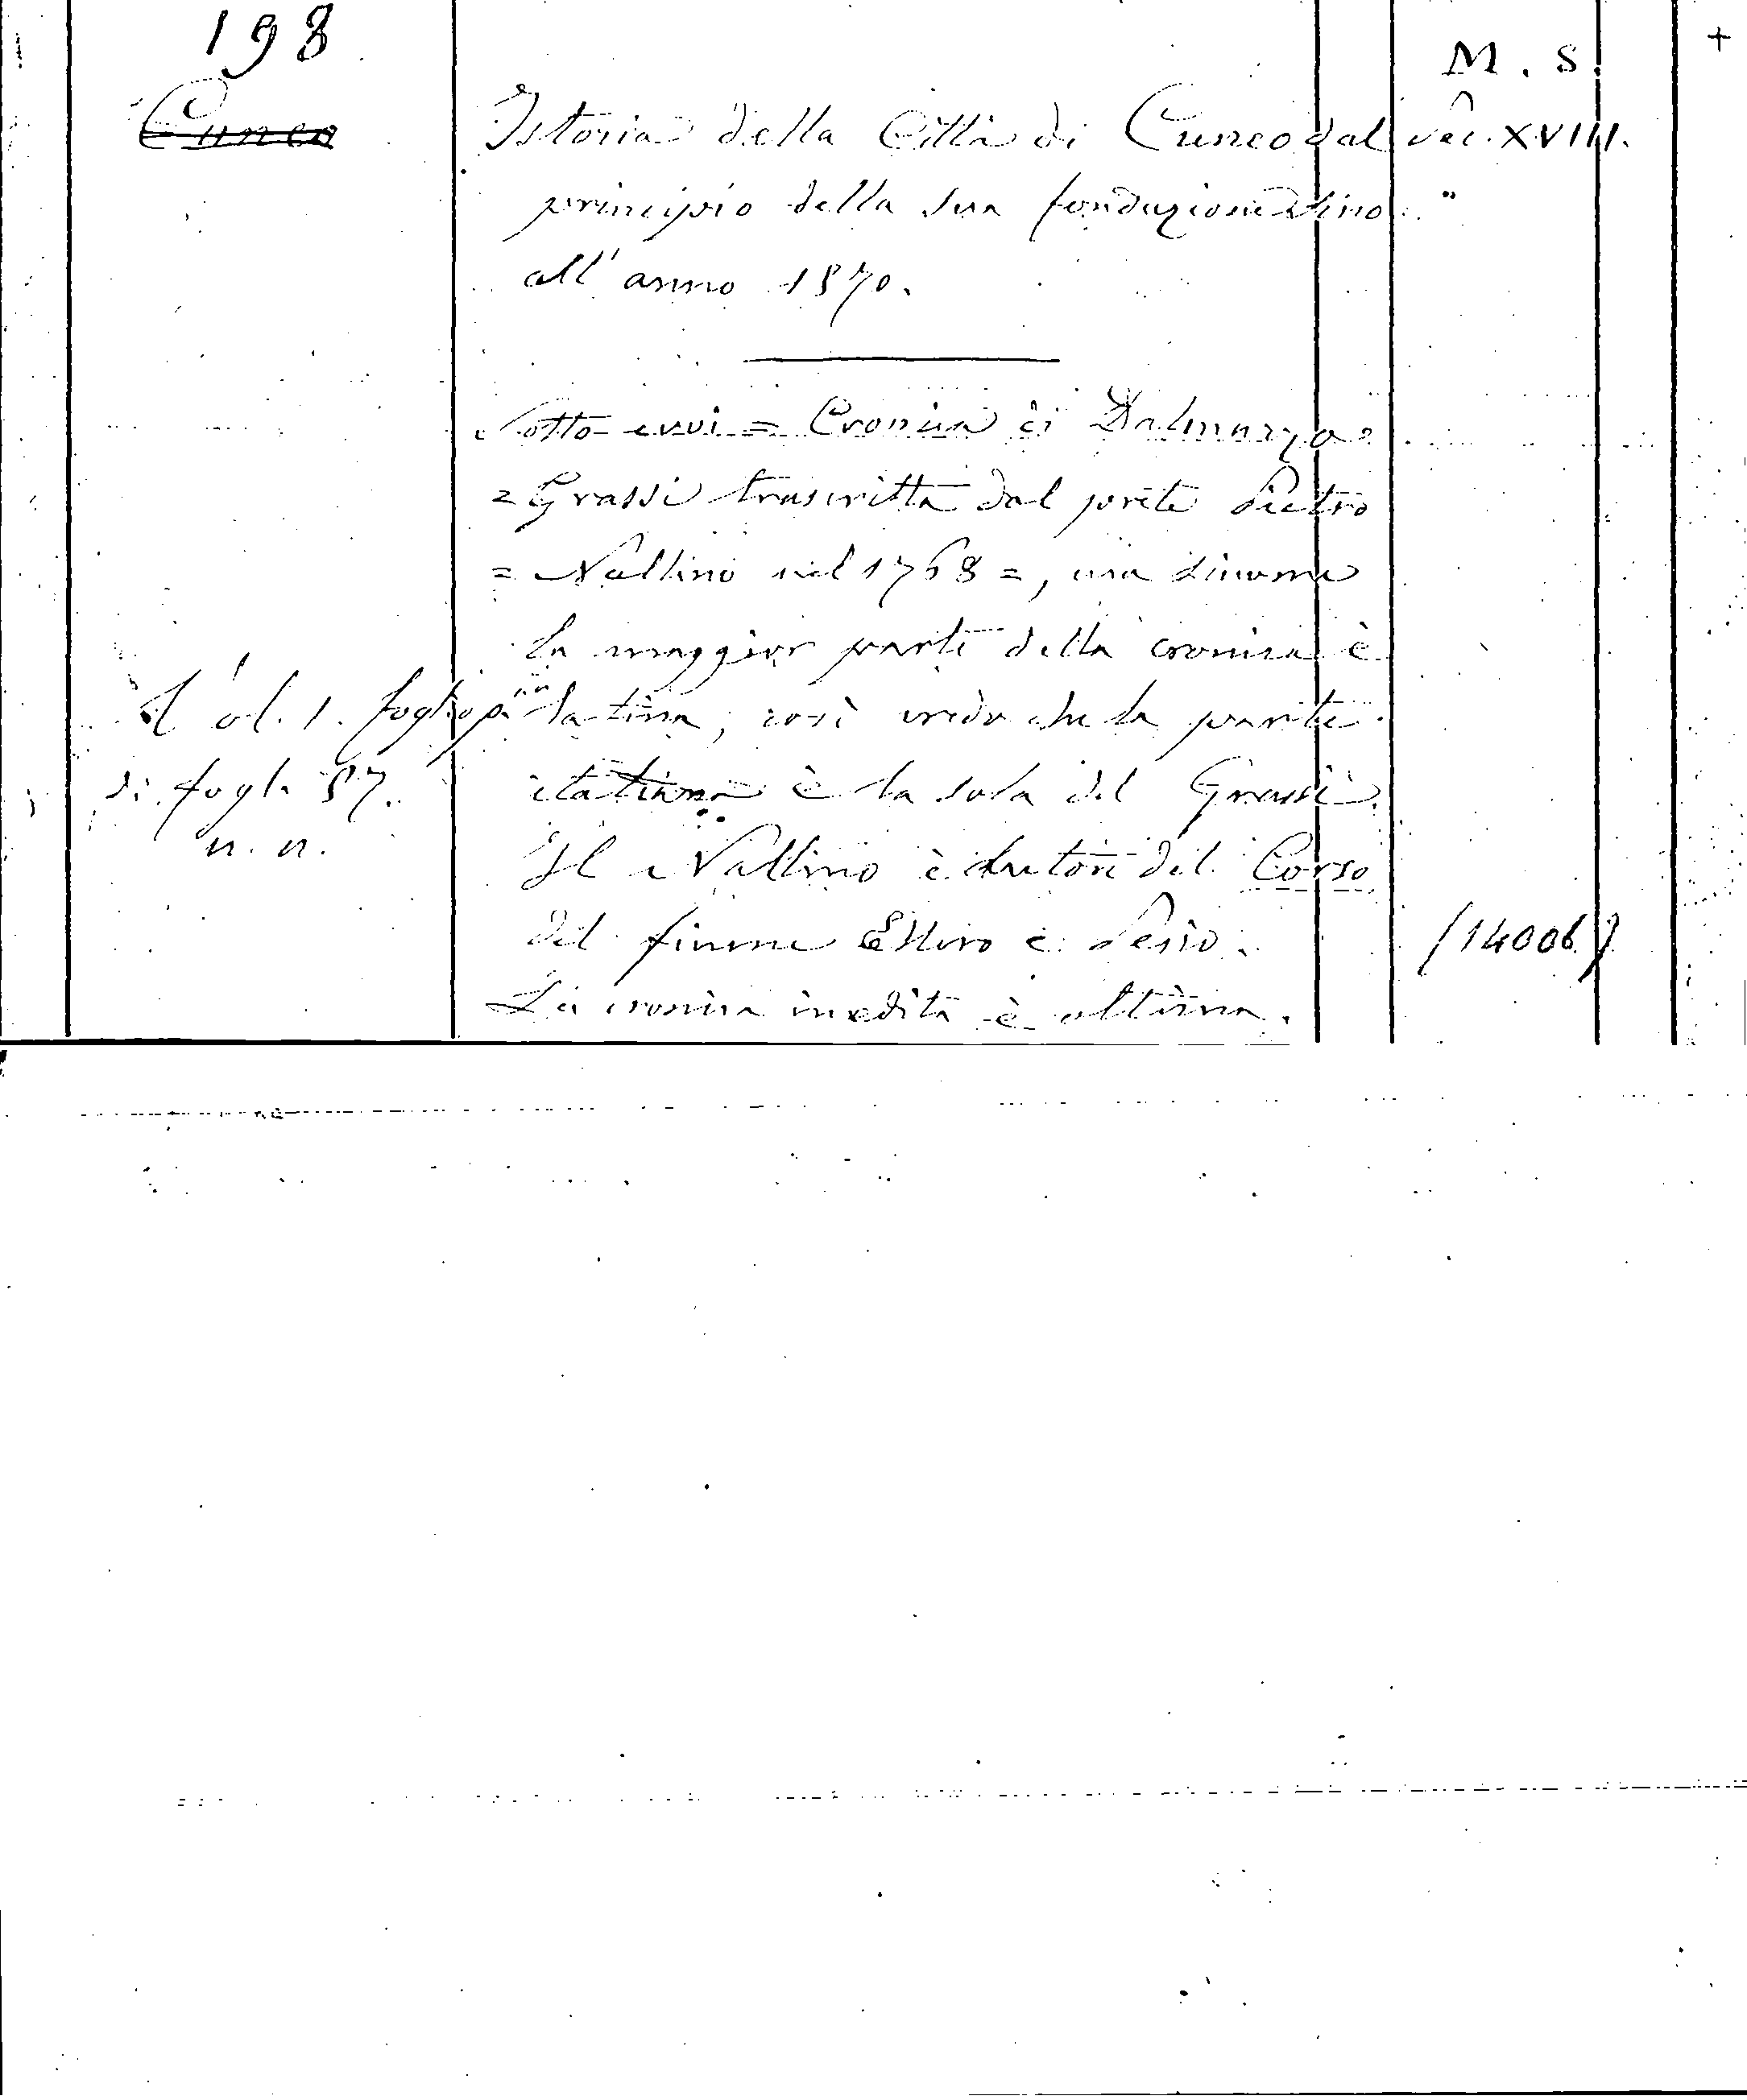 198
M. S.
+
Cuneo
Istoria della Città di Cuneo dal
sec. XVIII.
principio della sua fondazione sino
"
all'anno 1570.
Sotto evvi = Cronica di Dalmazzo =
= Grassi trascritta dal prete Pietro
= Nallino nel 1768 =, ma siccome
la maggior parte della cronica è
in latina, così credo che la parte
italiana è la sola del Grassi.
Il Nallino è autore del Corso
del fiume Ellero e Pesio.
La cronica inedita è ottima.
Vol. 1. foglio p.
di fogl. 57.
n. n.
(14006)